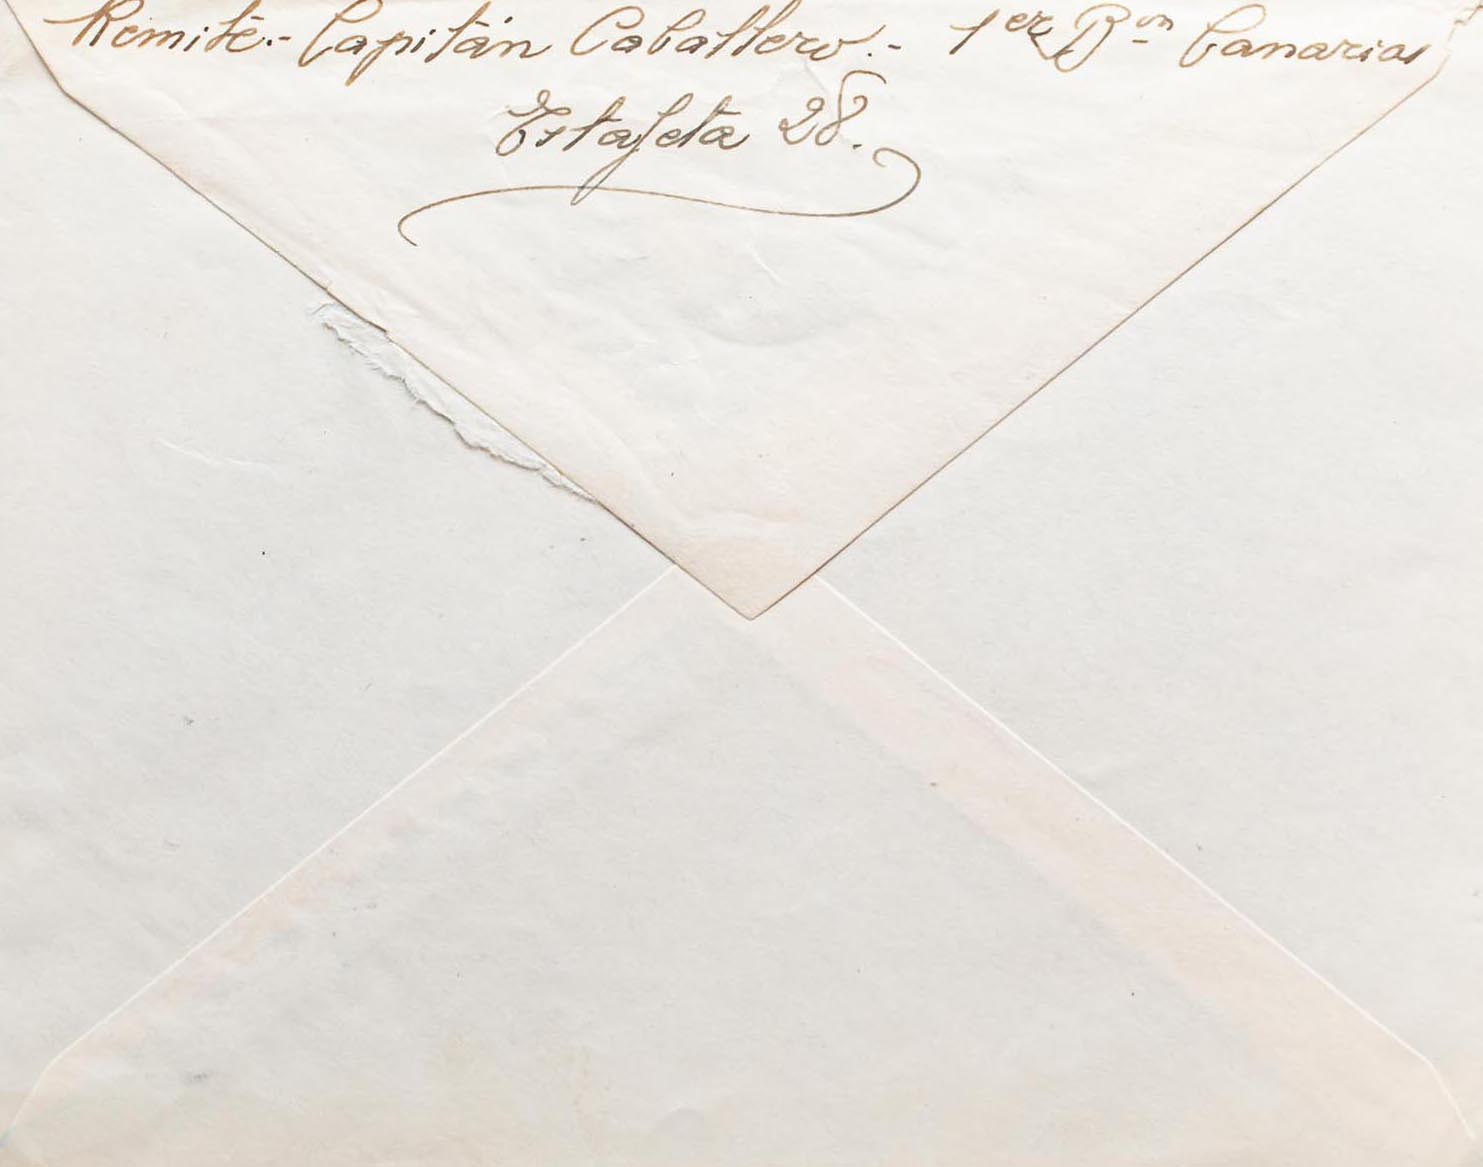 Remite.- Capitán Caballero.- 1er Bon Canarias
Estafeta 28.